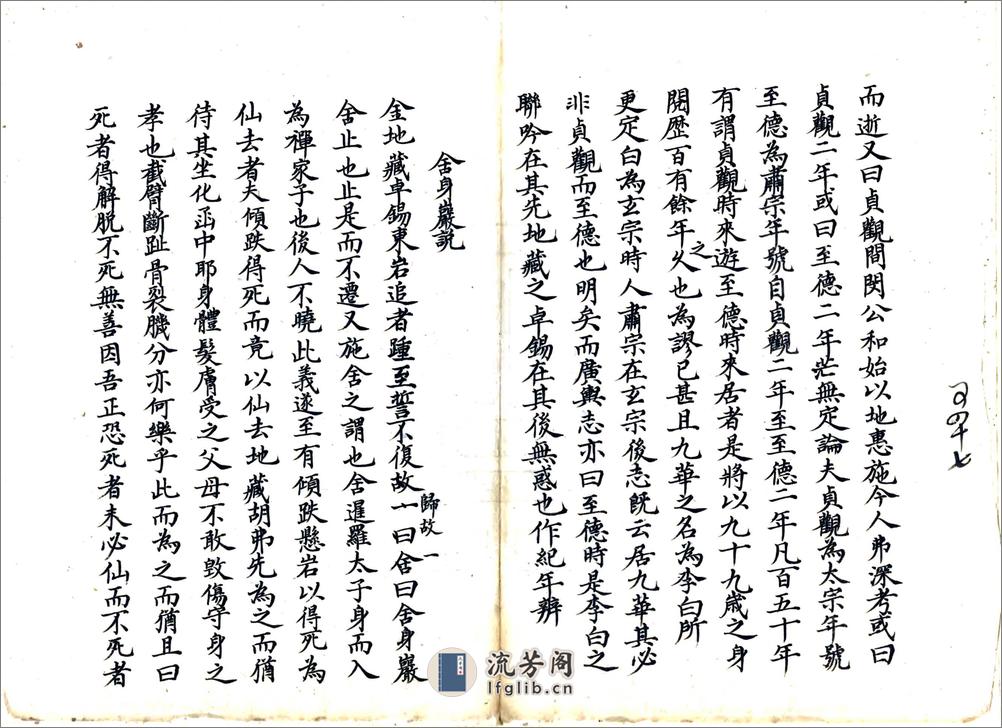 而逝又曰貞觀間閔公和始以地惠施今人弗深考或曰
貞觀二年或曰至德二年茫無定論夫貞觀為太宗年號
至德為肅宗年號自貞觀二年至至德二年凡百五十年
有謂貞觀時來遊至德時來居者是將以九十九歲之身
閱歷百有餘年之久也為謬已甚且九華之名為李白所
更定白為玄宗時人肅宗在玄宗後志既云居九華其必
非貞觀而至德也明矣而廣輿志亦曰至德時是李白之
聯吟在其先地藏之卓錫在其後無惑也作紀年辨
舍身巖說
金地藏卓錫東岩追者踵至誓不復故一曰舍曰舍身巖
歸故一
舍止也止是而不遷又施舍之謂也舍暹羅太子身而入
為禪家子也後人不曉此義遂至有傾跌懸岩以得死為
仙去者夫傾跌得死而竟以仙去地藏胡弗先為之而猶
待其坐化函中耶身體髮膚受之父母不敢毀傷守身之
孝也截臂斷趾骨裂臟分亦何樂乎此而為之而猶且曰
死者得解脫不死無善因吾正恐死者未必仙而不死者
四十七
流芳阁
lfglib.cn